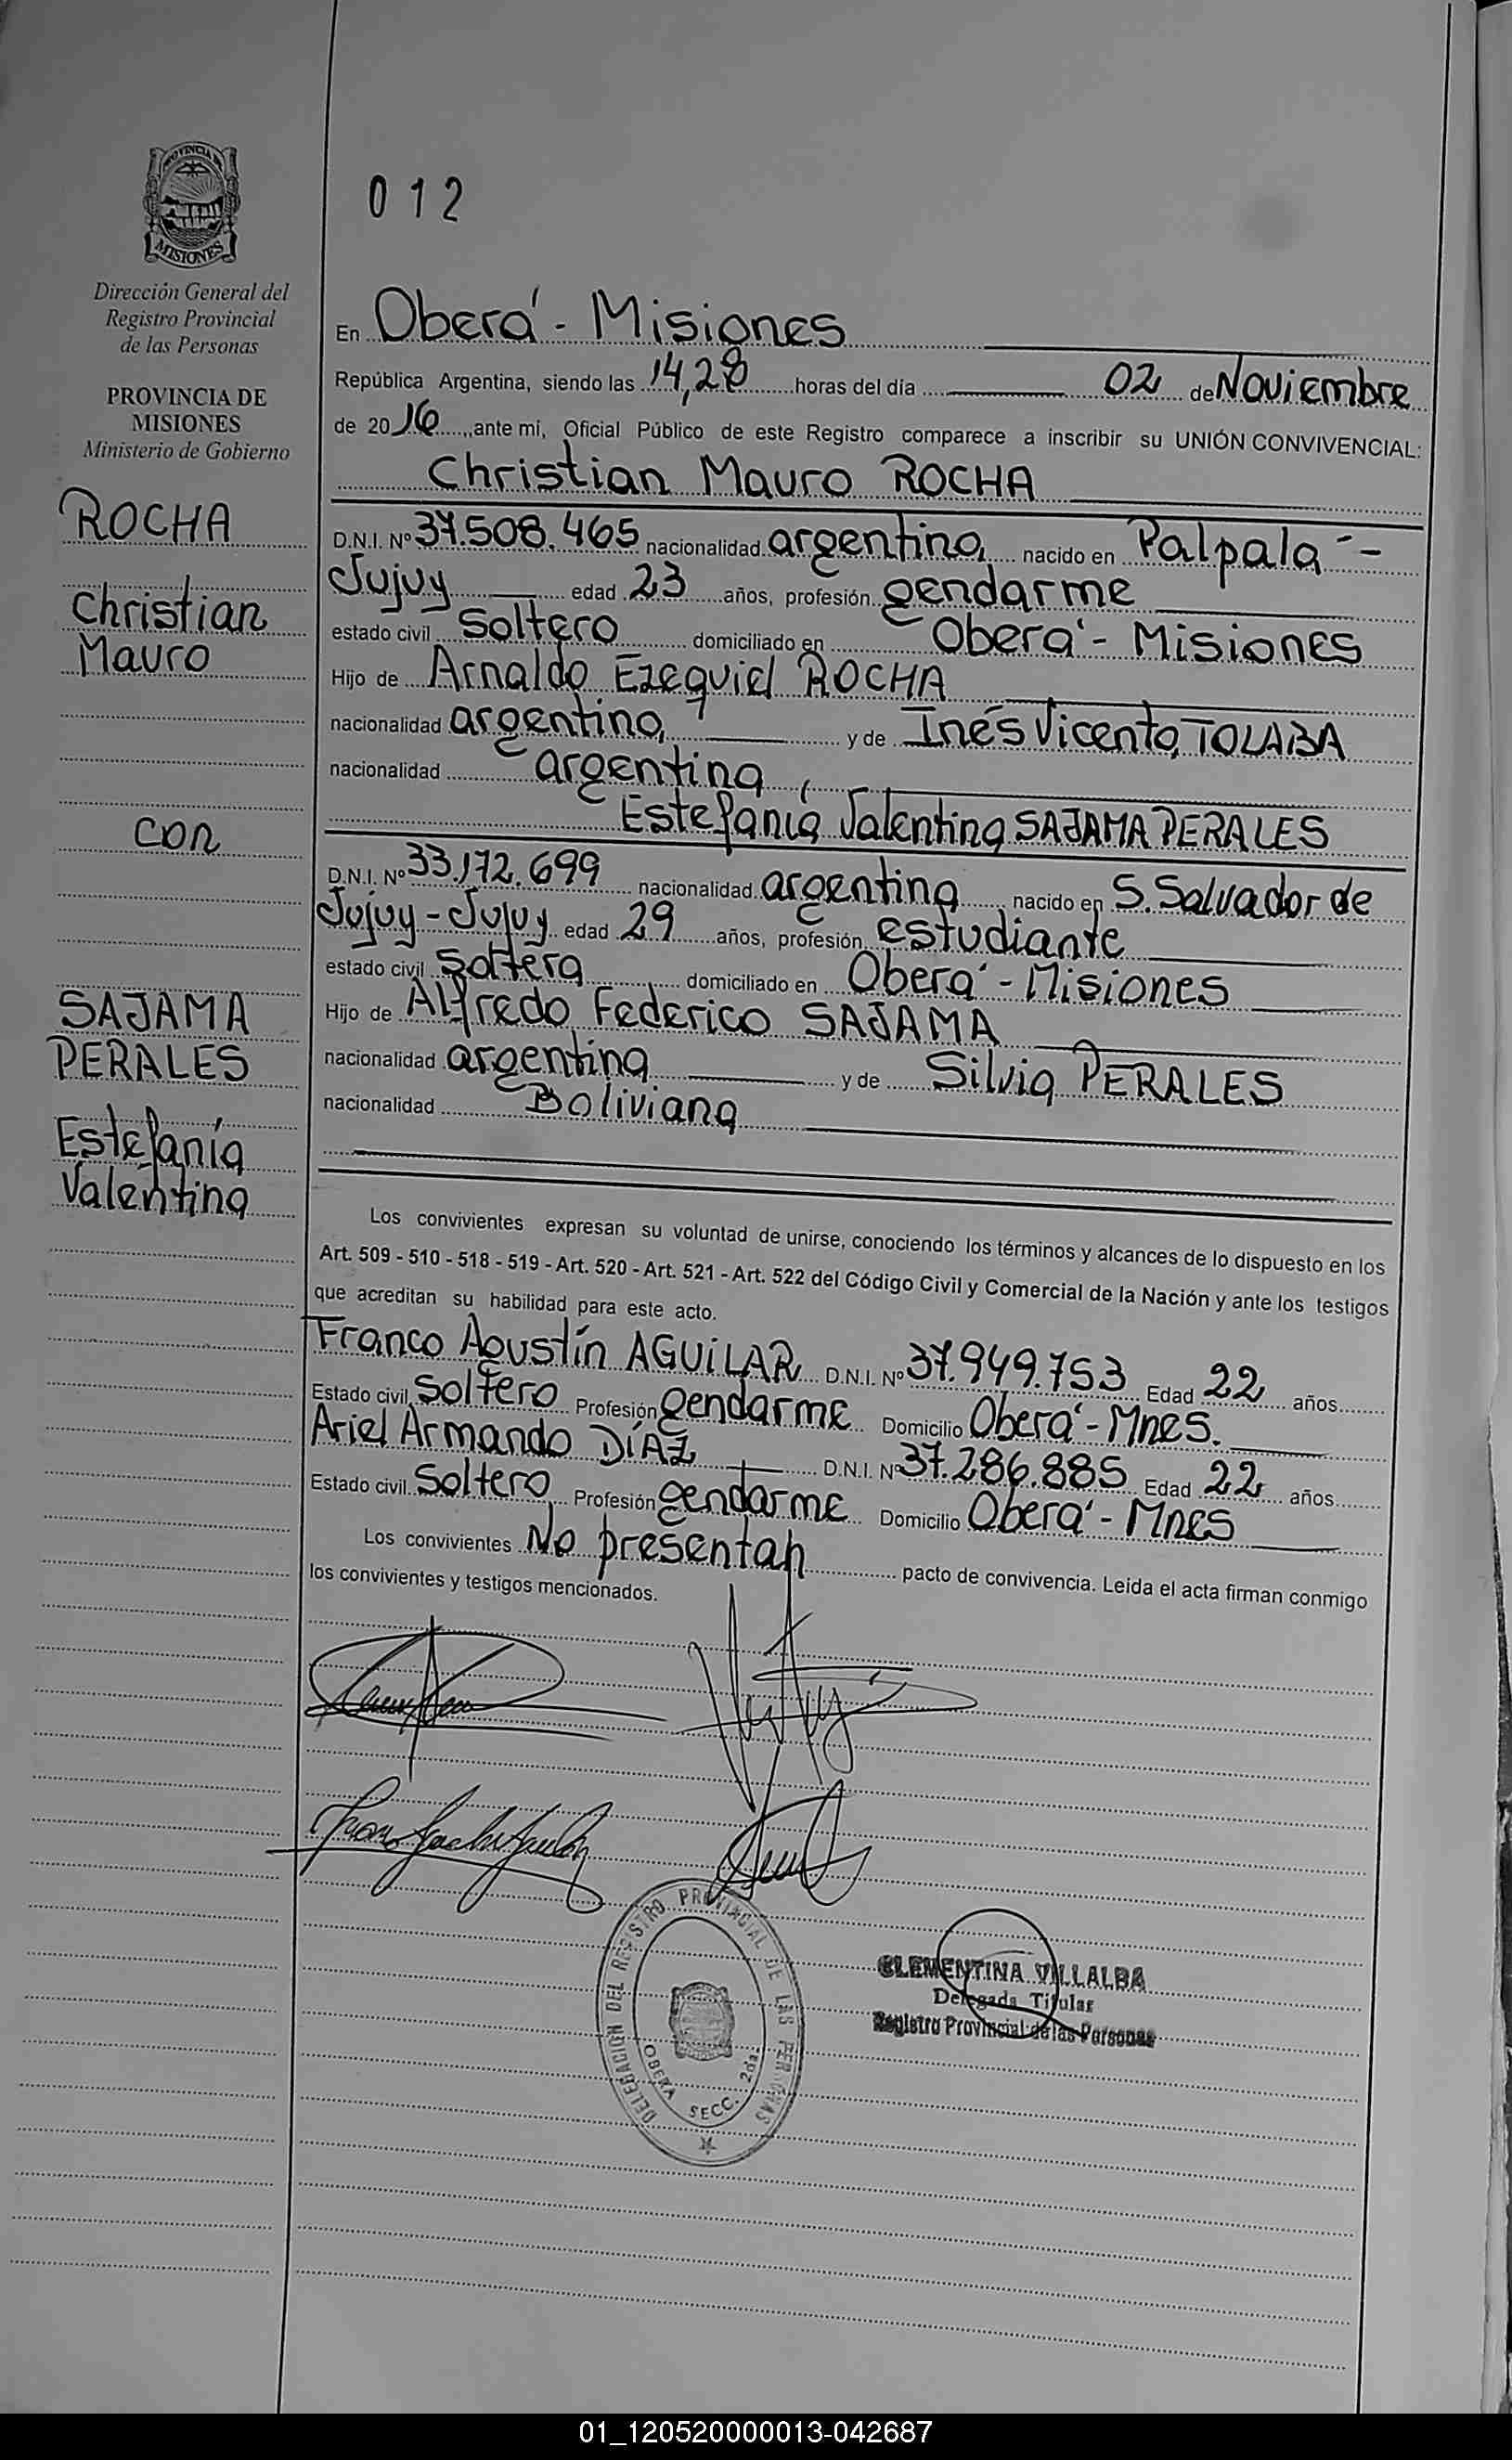 PROVINCIA DE
MISIONES
Dirección General del
Registro Provincial
de las Personas
PROVINCIA DE
MISIONES
Ministerio de Gobierno
ROCHA
Christian
Mauro
con
SAJAMA
PERALES
Estefanía
Valentina
012
En Oberá - Misiones
República Argentina, siendo las 14,28 horas del día 02 de Noviembre
de 2016, ante mí, Oficial Público de este Registro comparece a inscribir su UNIÓN CONVIVENCIAL:
Christian Mauro ROCHA
D.N.I. Nº 37.508.465 nacionalidad argentina, nacido en Palpalá -
Jujuy edad 23 años, profesión gendarme
estado civil Soltero domiciliado en Oberá - Misiones
Hijo de Arnaldo Ezequiel ROCHA
nacionalidad argentino, y de Inés Vicenta TOLABA
nacionalidad argentina,
Estefanía Valentina SAJAMA PERALES
D.N.I. Nº 33.172.699 nacionalidad argentina nacido en S. Salvador de
Jujuy - Jujuy edad 29 años, profesión estudiante
estado civil Soltera domiciliado en Oberá - Misiones
Hijo de Alfredo Federico SAJAMA
nacionalidad argentina y de Silvia PERALES
nacionalidad Boliviana
Los convivientes expresan su voluntad de unirse, conociendo los términos y alcances de lo dispuesto en los
Art. 509 - 510 - 518 - 519 - Art. 520 - Art. 521 - Art. 522 del Código Civil y Comercial de la Nación y ante los testigos
que acreditan su habilidad para este acto.
Franco Agustín AGUILAR D.N.I. Nº 37.949.753 Edad 22 años
Estado civil Soltero Profesión gendarme Domicilio Oberá - Mnes.
Ariel Armando DÍAZ D.N.I. Nº 37.286.885 Edad 22 años
Estado civil Soltero Profesión gendarme Domicilio Oberá - Mnes
Los convivientes No presentan pacto de convivencia. Leida el acta firman conmigo
los convivientes y testigos mencionados.
DELEGACION DEL REGISTRO PROVINCIAL DE LAS PERSONAS
OBERA SECC. 2da.
CLEMENTINA VILLALBA
Delegada Titular
Registro Provincial de las Personas
01_120520000013-042687